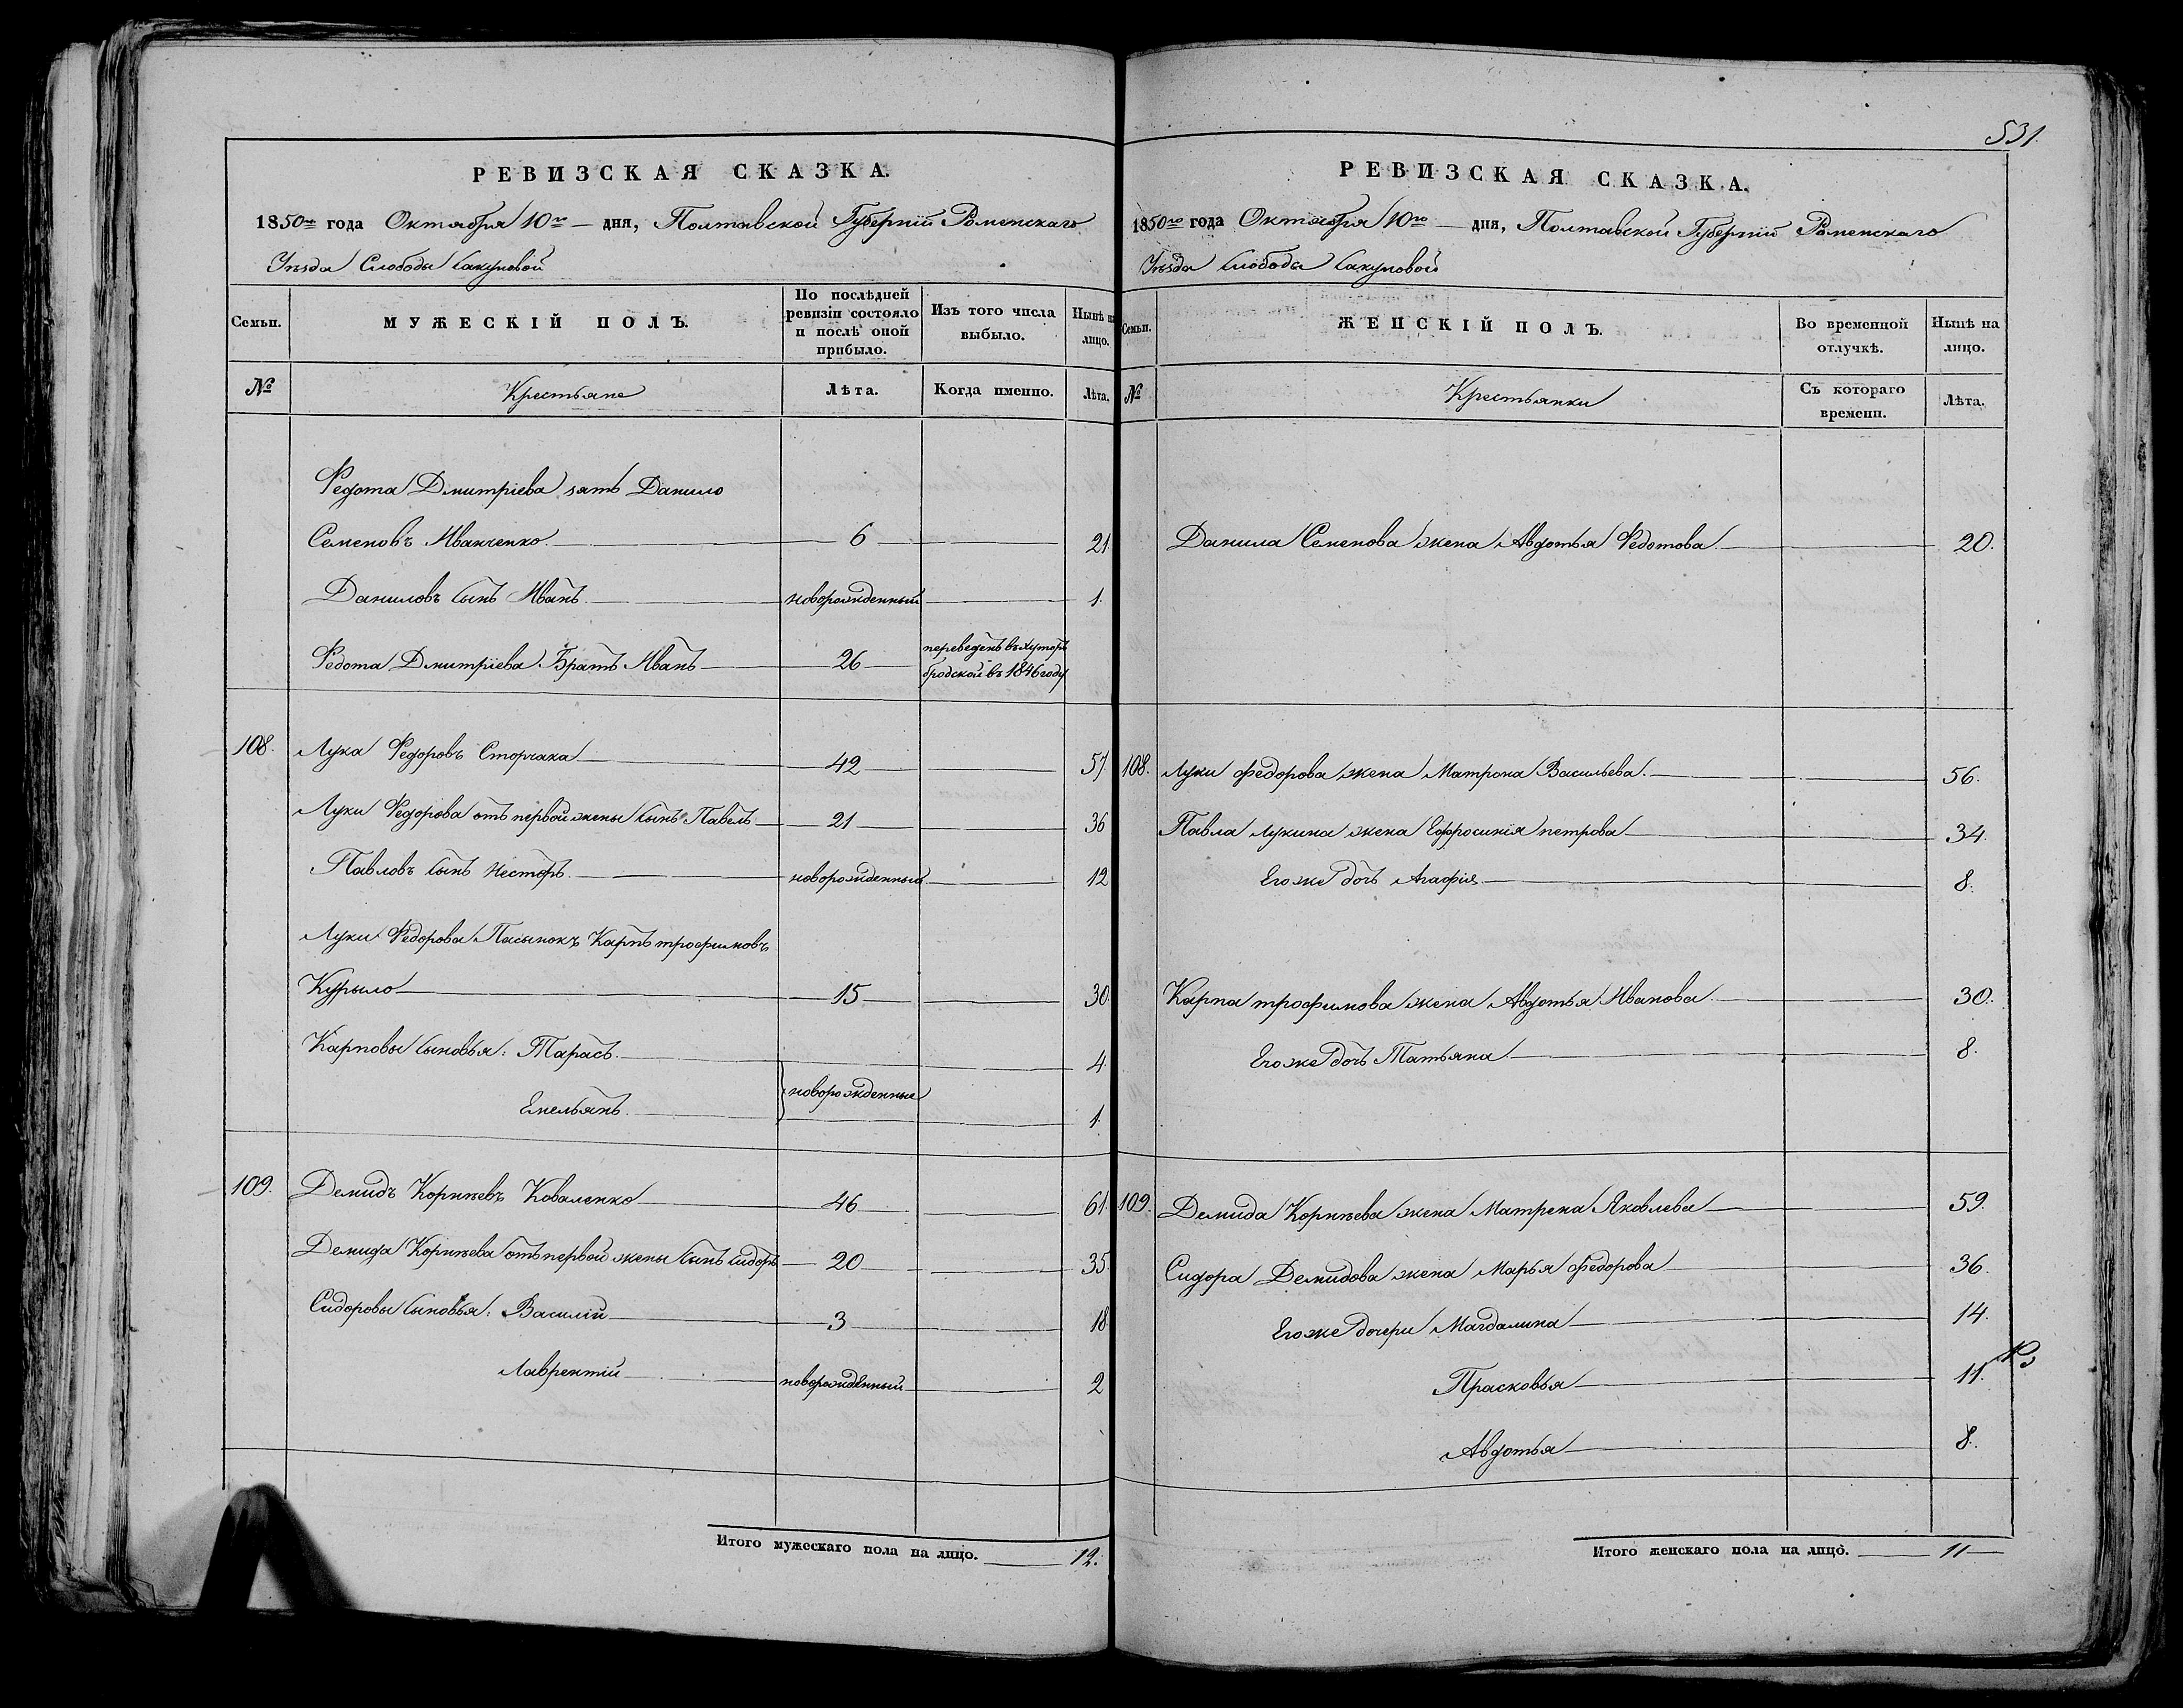 РЕВИЗСКАЯ СКАЗКА.
1850го года Октября 10го дня, Полтавской Губерніи Роменскаго
Уѣзда Слободы Сакуновой
Семьи.
МУЖЕСКІЙ ПОЛЪ.
По послѣдней ревизіи состояло и послѣ оной прибыло.
Изъ того числа выбыло.
Нынѣ на лицо.
№
Крестьяне
Лѣта.
Когда именно.
Лѣта.
Федота Дмитріева зять Данило
Семеновъ Иванченко 6 21.
Даниловъ сынъ Иванъ новорожденный 1.
Федота Дмитріева Братъ Иванъ 26 переведенъ въ хуторъ
бродской въ 1846 году
108. Лука Федоровъ Сторчака 42 57
Луки Федорова отъ первой жены сынъ Павелъ 21 36
Павловъ сынъ Несторъ новорожденный 12
Луки Федорова Пасынокъ Карпъ трофимовъ
Курыло 15 30.
Карповы сыновья: Тарасъ 4.
новорожденные
Емельянъ 1.
109. Демидъ Корнѣевъ Коваленко 46 61.
Демида Корнѣева отъ первой жены сынъ сидоръ 20 35.
Сидоровы сыновья: Василій 3 18
Лаврентій новорожденный 2
Итого мужескаго пола на лицо. 12.
531.
РЕВИЗСКАЯ СКАЗКА.
1850го года Октября 10го дня, Полтавской Губерніи Роменскаго
Уѣзда слободы Сакуновой
Семьи.
ЖЕНСКІЙ ПОЛЪ.
Во временной отлучкѣ.
Нынѣ на лицо.
№
Крестьянки
Съ котораго времени.
Лѣта.
Данила Семенова жена Авдотья Федотова 20.
108. Луки федорова жена Матрона Васильева. 56.
Павла лукина жена Ефросинія петрова 34.
Его же дочь Агафія 8.
Карпа трофимова жена Авдотья Иванова 30.
Его же дочь Татьяна 8.
109. Демида Корнѣева жена Матрена Яковлева 59.
Сидора Демидова жена Марья федорова 36.
Его же дочери Магдалина 14.
Прасковья 11.
Авдотья 8.
Итого женскаго пола на лицо. 11